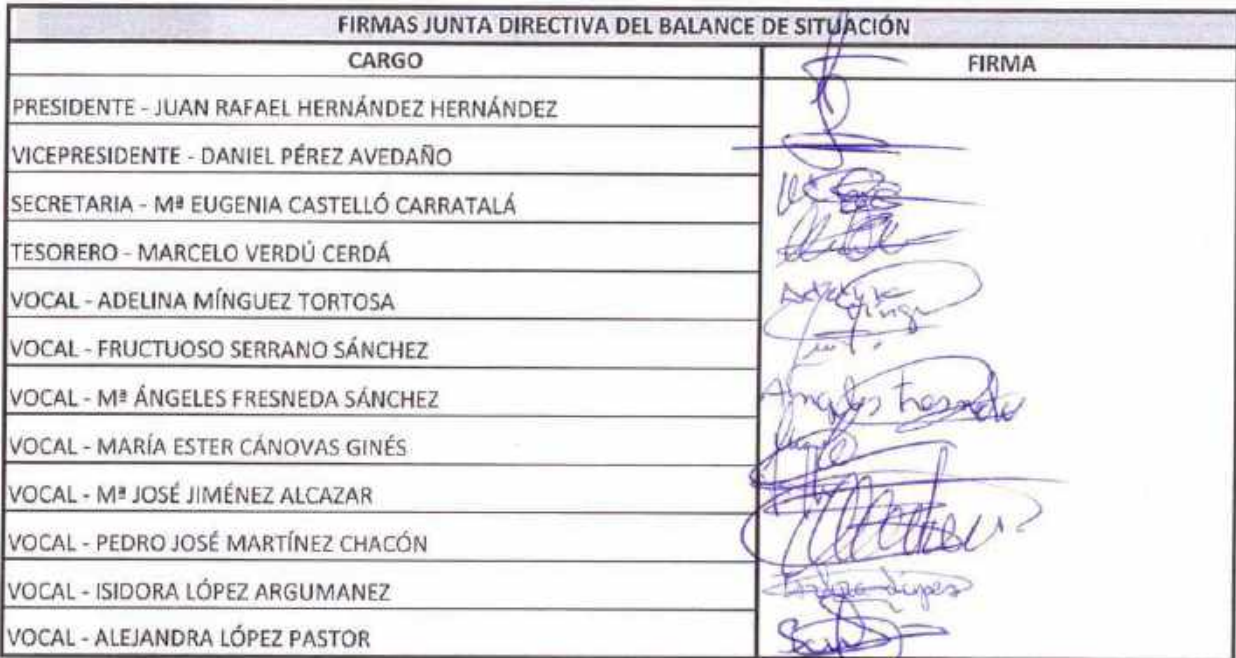 FIRMAS JUNTA DIRECTIVA DEL BALANCE DE SITUACIÓN
CARGO FIRMA
PRESIDENTE - JUAN RAFAEL HERNÁNDEZ HERNÁNDEZ
VICEPRESIDENTE - DANIEL PÉREZ AVEDAÑO
SECRETARIA - Mª EUGENIA CASTELLÓ CARRATALÁ
TESORERO - MARCELO VERDÚ CERDÁ
VOCAL - ADELINA MÍNGUEZ TORTOSA
VOCAL - FRUCTUOSO SERRANO SÁNCHEZ
VOCAL - Mª ÁNGELES FRESNEDA SÁNCHEZ Angeles Fresneda
VOCAL - MARÍA ESTER CÁNOVAS GINÉS
VOCAL - Mª JOSÉ JIMÉNEZ ALCAZAR
VOCAL - PEDRO JOSÉ MARTÍNEZ CHACÓN
VOCAL - ISIDORA LÓPEZ ARGUMANEZ López
VOCAL - ALEJANDRA LÓPEZ PASTOR